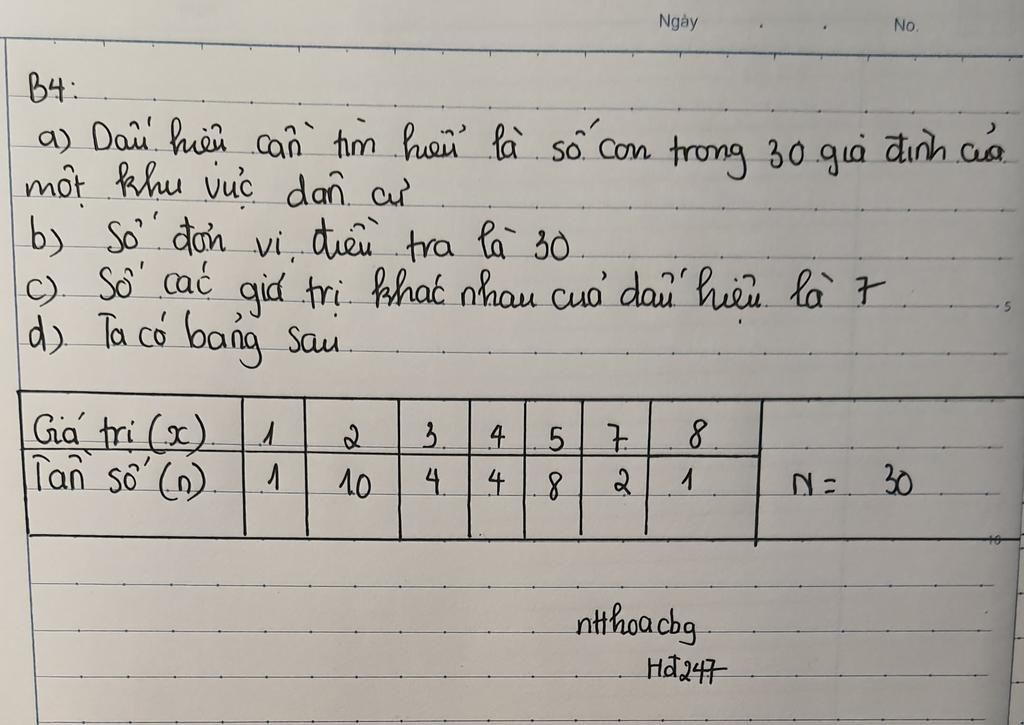 Ngày . . No.
B4:
a) Dấu hiệu cần tìm hiểu là số con trong 30 gia đình của
một khu vực dân cư
b) Số đơn vị điều tra là 30
c) Số các giá trị khác nhau của dấu hiệu là 7
5
d) Ta có bảng sau
Giá trị (x) 1 2 3 4 5 7 8
Tần số (n) 1 10 4 4 8 2 1 N = 30
10
nHhoacbg
Hđ247